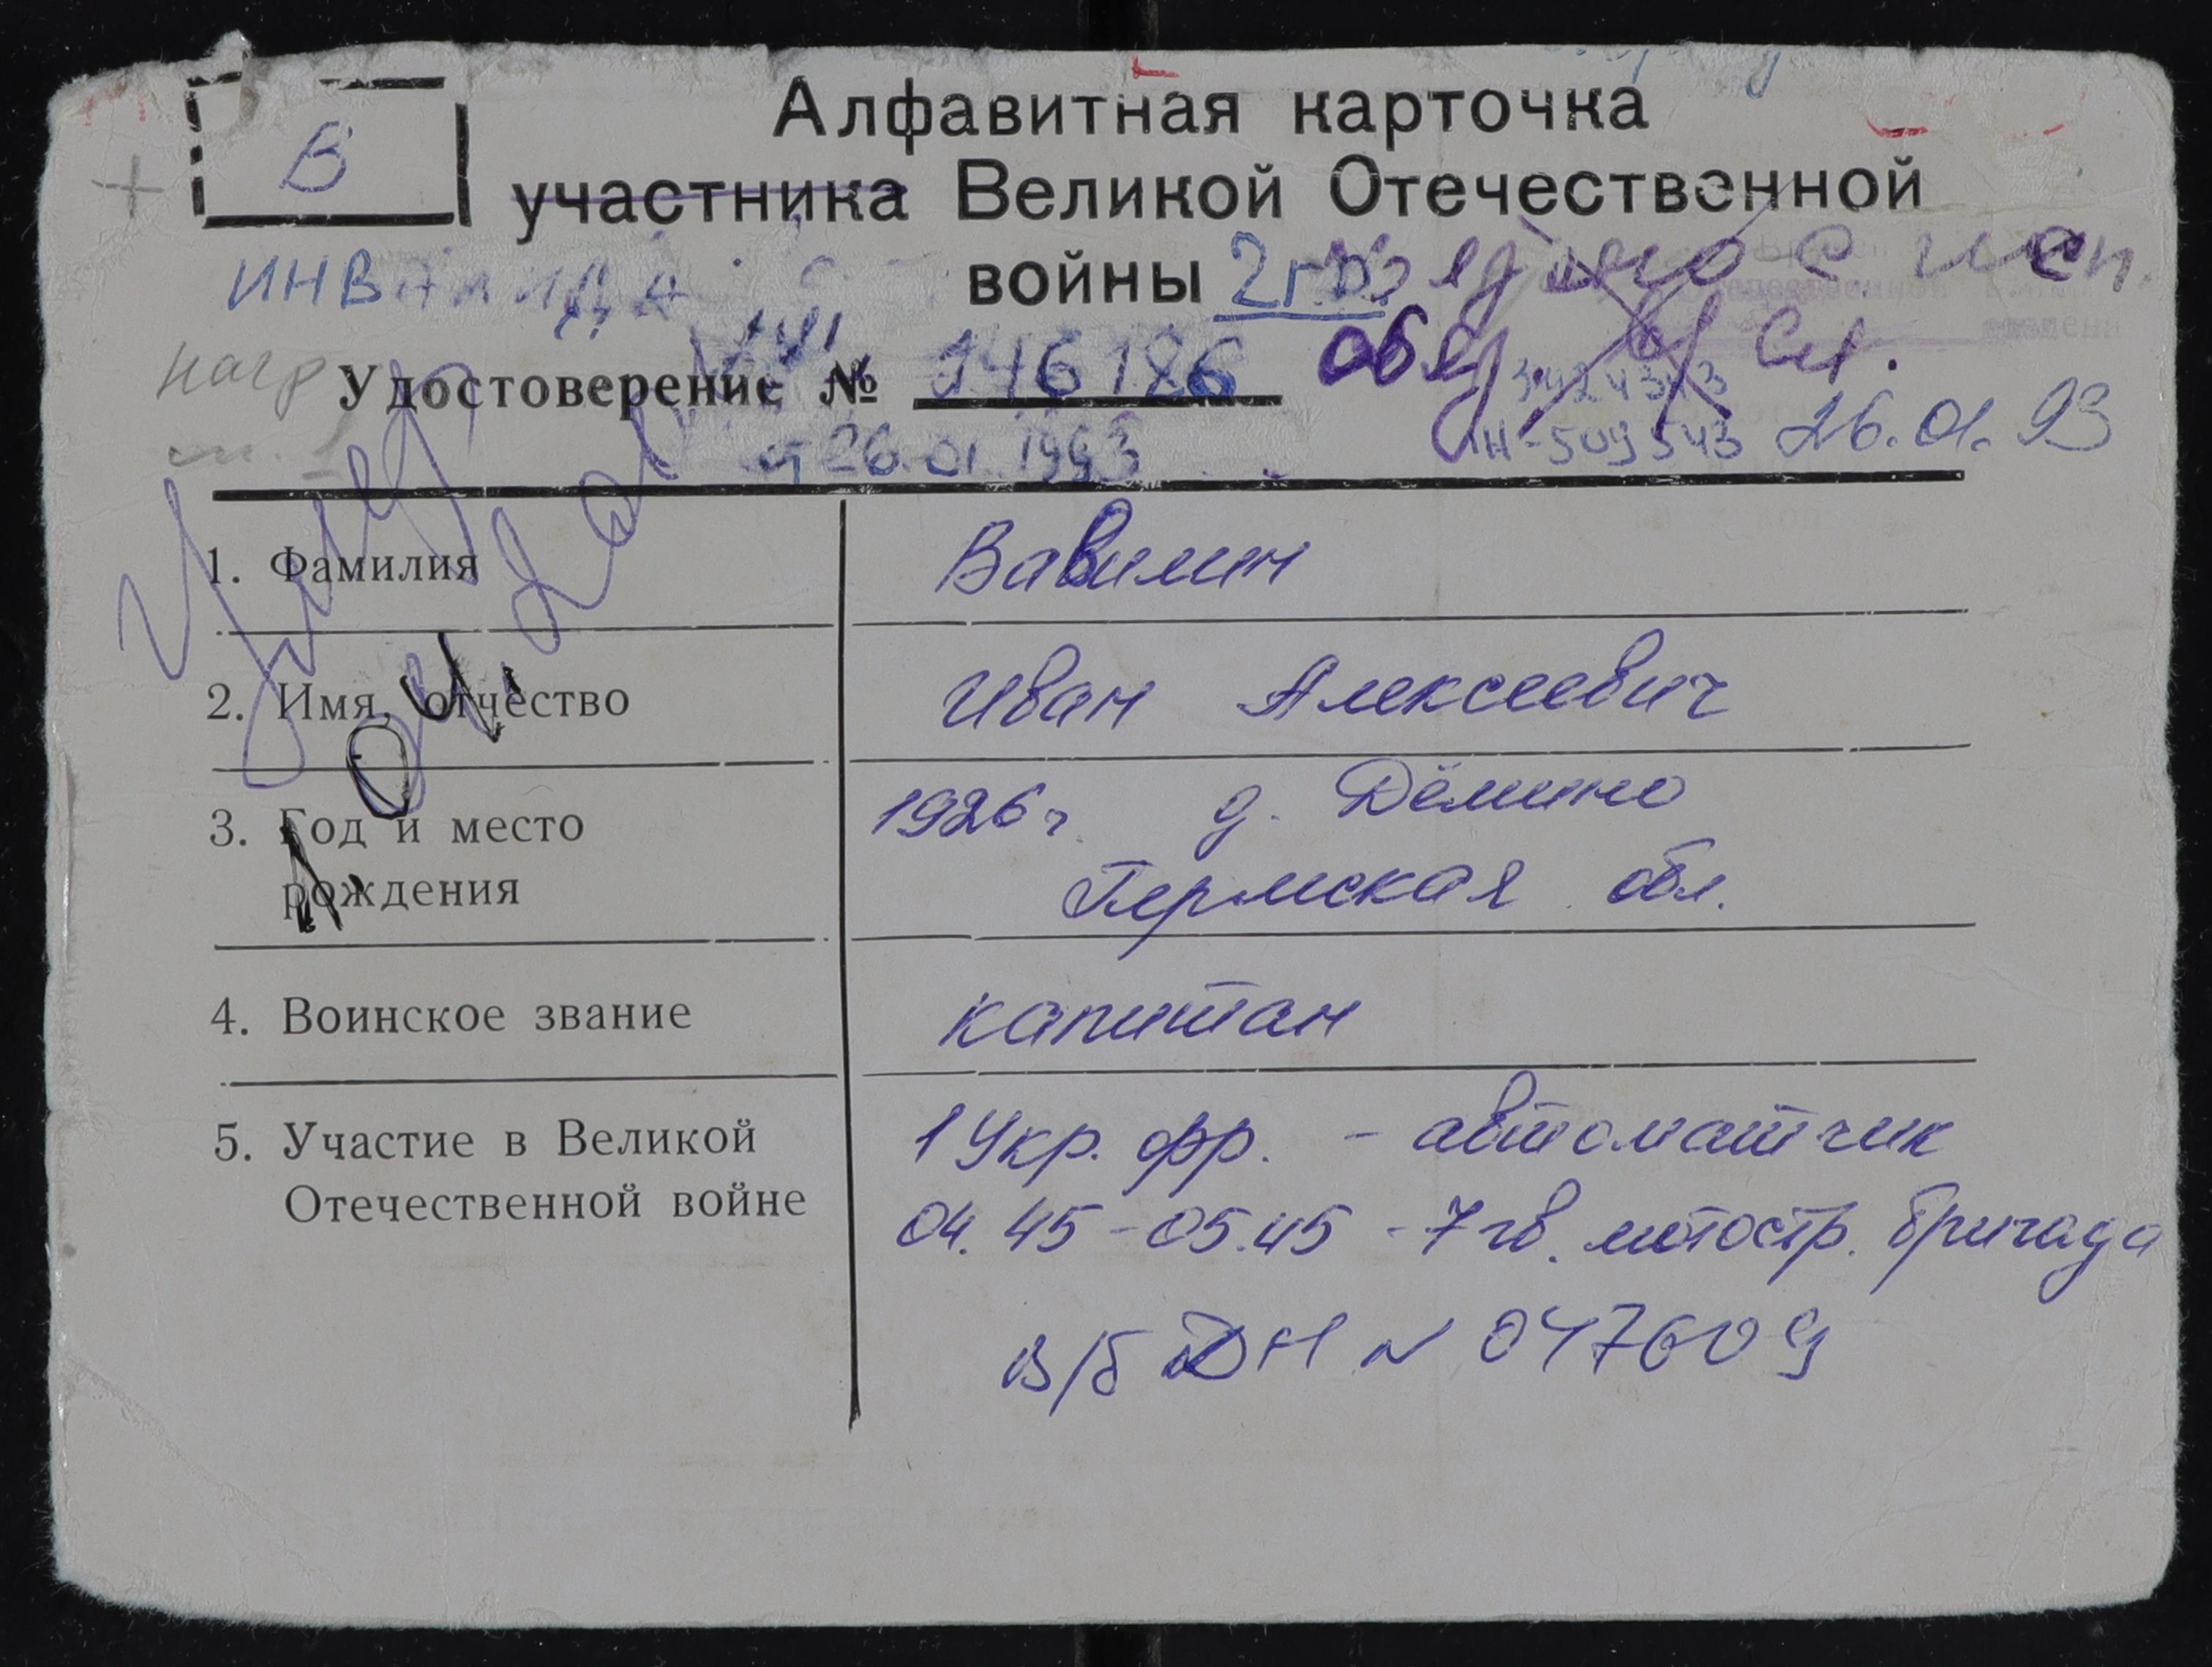 В
Алфавитная карточка
участника Великой Отечественной
войны 2гр.
инвалида
нагр
Удостоверение № 146186
26.01.1993
Н-509543 26.01.93
1. Фамилия Вавилин
2. Имя, отчество Иван Алексеевич
3. Год и место 1926г. д. Дёмино
рождения Пермская обл.
4. Воинское звание капитан
5. Участие в Великой 1 Укр. фр. - автоматчик
Отечественной войне 04.45-05.45 - 7 гв. мотостр. бригада
в/б ДН N 047609